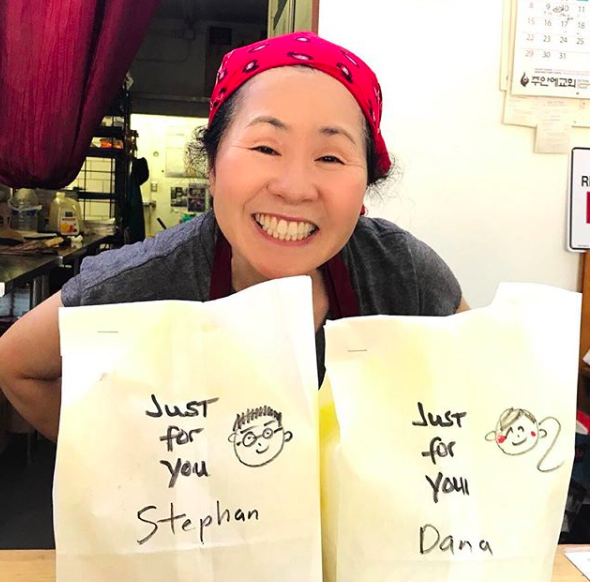 8 9 10 11
15 16 17 18
22 23 24 25
29 30 31
주안에교회
R
JUST
for
you
Stephan
JUST
for
you
Dana